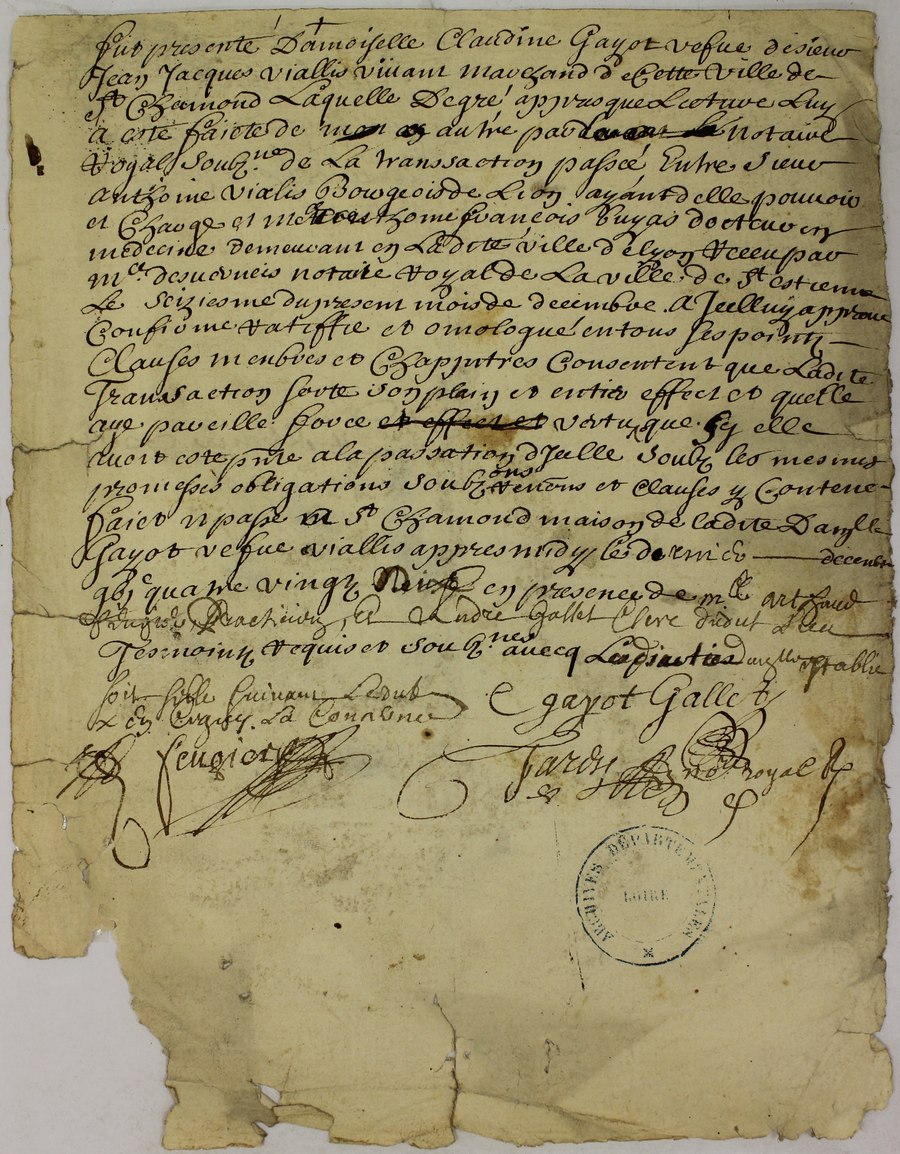 fut presenté Damoiselle Claudine Gayot vefue de sieur
Jean Jacques viallis vivant marchand de Cette ville de
St Chamond Laquelle Degré appres que Lecture Luy
a esté faicte de autre par notaire
Royal soubzne. de La transsaction passeé Entre Sieur
Anthoine vialis Bourgeois de Lion ayant delle pouvoir
et Charge et françois docteur en
medecine demeurant en Ladite ville de lyon Receu par
Me desverneis notaire Royal de La ville de St estienne
Le seiziesme du present mois de decembre a Jcelluy approuve
Confirme Ratiffie et omologue en tous ses pointz
Clauses menbres et Chappitres Consentent que Ladite
Transaction sorte son plain et entier effect et quelle
aye pareille force et effect et vertu que sy elle
avoit esté pnte a la passation dJcelle soubz les mesmes
promesses obligations soubzons Renons et clauses y Contene
faict et passé a St Chamond maison de ladite Damlle
Gayot vefue viallis appres midy le dernier decembre
gbjc quatre vingz neuf en presence de
Practicien Et André Gallet Clerc dudit Lieu
Tesmoinz Requis et soubznes avecq Lesdparties
soit
La
C gayot Gallet
feugiere
Tardy nore royal
ARCHIVES DÉPARTEMENTALES
LOIRE